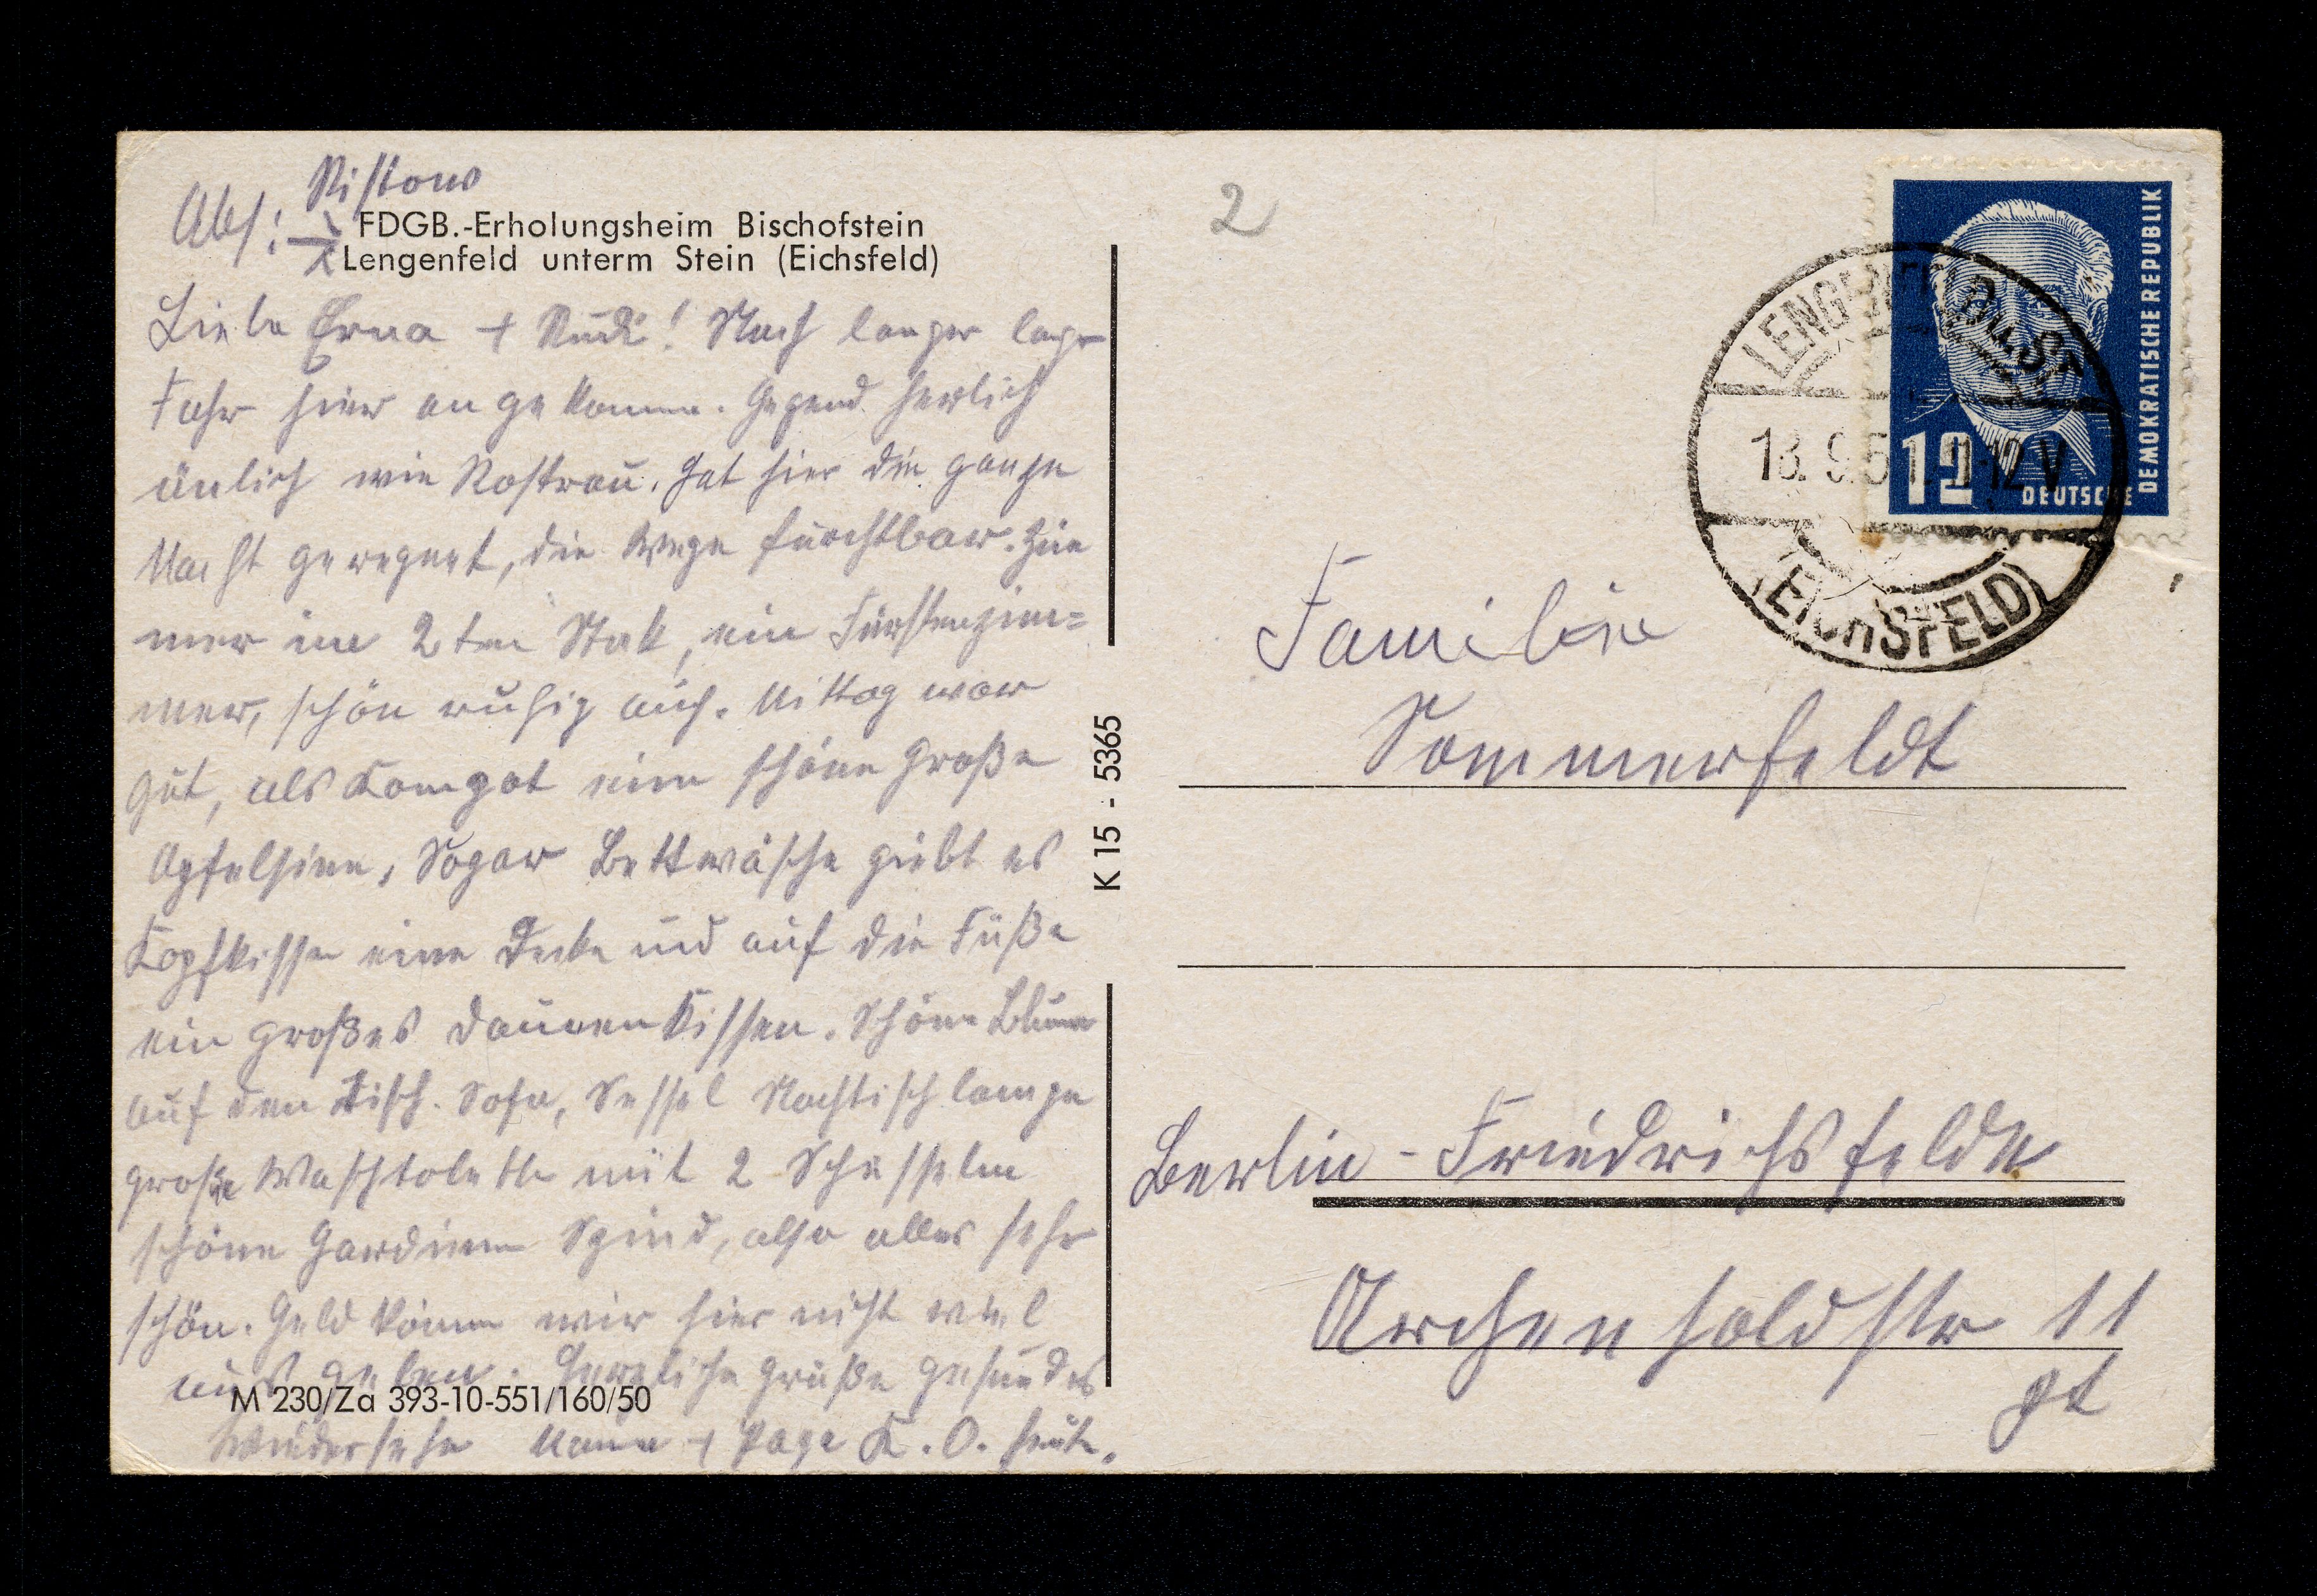 Ristow
Abs:
FDGB.-Erholungsheim Bischofstein
Lengenfeld unterm Stein (Eichsfeld)
Liebe Erna + Rudi! Nach langer
Fahr hier angekomme. Gegend herlich
änlich wie Rostrau. Hat hier die ganze
Nacht geregnet, die Wege furchtbar. Zim
mer im 2ten Stak, ein Fürstenzim=
mer, schön ruhig auch. Mittag war
gut, als Kompot eine schöne große
Apfelsine, Sogar Bettwäsche giebt es
Kopfkissen eine Decke und auf die Füße
ein großes Daunenkissen. Schöne Blume
auf den Tisch. Sofa, Sessel Nachtischlampe
große Waschtolette mit 2 Schüsseln
schöne Gardinen Spind, also alles sehr
schön. Geld könne wir hier nicht viel
aus geben. Herzliche Grüße gesundes
Wiedersehe Mama + Papa K. O. heute.
M 230/Za 393-10-551/160/50
K 15 - 5365
2
DEUTSCHE DEMOKRATISCHE REPUBLIK
12
LENGENFELD U. ST.
18. 9. 51. 12 V
(EICHSFELD)
Familie
Sommerfeldt
Berlin - Friedrichsfelde
Archenholdstr 11
pt